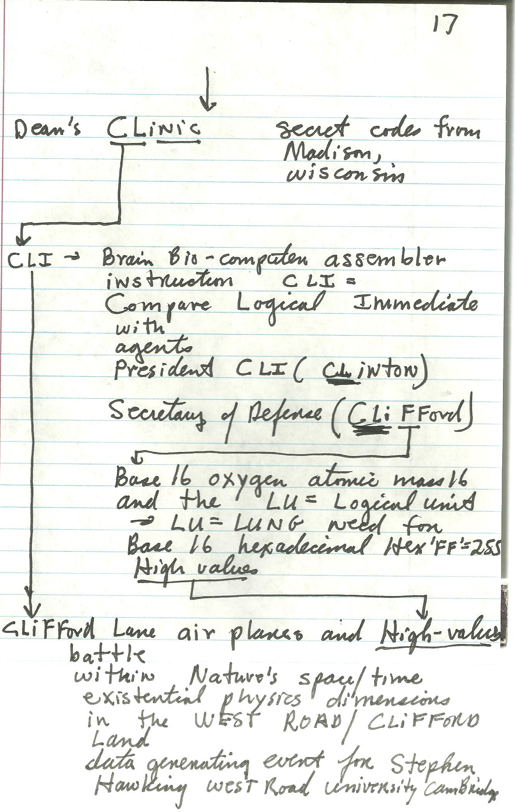 17
Dean's CLiNic secret codes from
Madison,
wisconsin
CLI → Brain Bio-computer assembler
instruction CLI =
Compare Logical Immediate
with
agents
President CLI (CLiNTON)
Secretary of Defense (CLiFFord)
Base 16 oxygen atomic mass 16
and the LU = Logical unit
→ LU = LUNG need for
Base 16 hexadecimal Hex 'FF' = 255
High values
CLiFFord Lane air planes and High-values
battle
within Nature's space/time
existential physics dimensions
in the WEST ROAD/CLiFFORD
Land
data generating event for Stephen
Hawking West Road University CamBridge